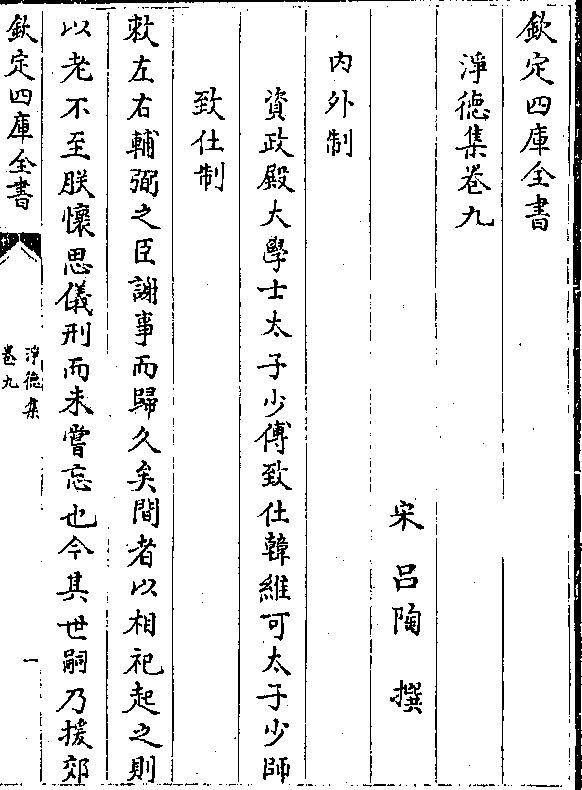 欽定四庫全書
淨徳集卷九
宋呂陶撰
內外制
資政殿大學士太子少傅致仕韓維可太子少師
致仕制
敕左右輔弼之臣謝事而歸久矣間者以相祀起之則
以老不至朕懷思儀刑而未嘗忘也今其世嗣乃援郊
欽定四庫全書
淨徳集
卷九
一